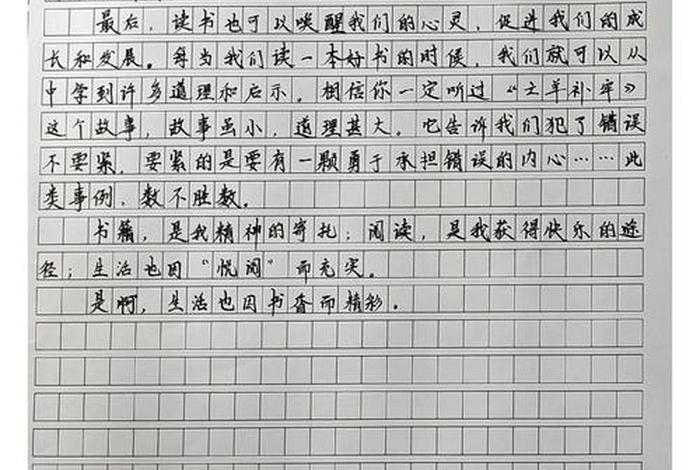 最后，读书也可以唤醒我们的心灵，促进我们的成
长和发展。每当我们读一本好书的时候，我们就可以从
中学到许多道理和启示。相信你一定听过《亡羊补牢》
这个故事，故事虽小，道理甚大。它告诉我们犯了错误
不要紧，要紧的是要有一颗勇于承担错误的内心……此
类事例，数不胜数。
书籍，是我精神的寄托；阅读，是我获得快乐的途
径；生活也因“悦阅”而充实。
是啊，生活也因书香而精彩。